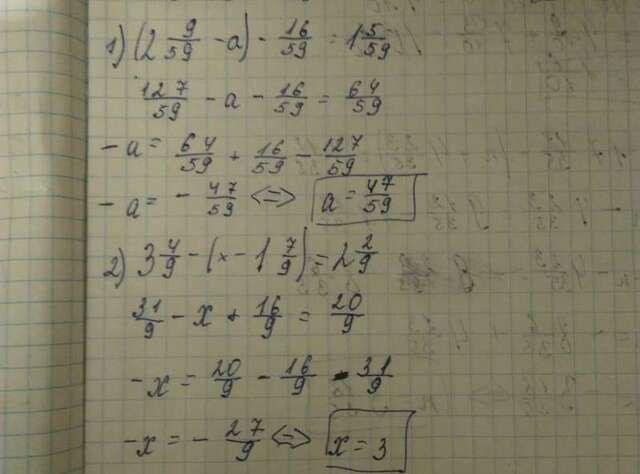 1) (2 9/59 - a) - 16/59 = 1 5/59
127/59 - a - 16/59 = 64/59
- a = 64/59 + 16/59 - 127/59
- a = - 47/59 <=> a = 47/59
2) 3 4/9 - (x - 1 7/9) = 2 2/9
31/9 - x + 16/9 = 20/9
- x = 20/9 - 16/9 - 31/9
- x = - 27/9 <=> x = 3